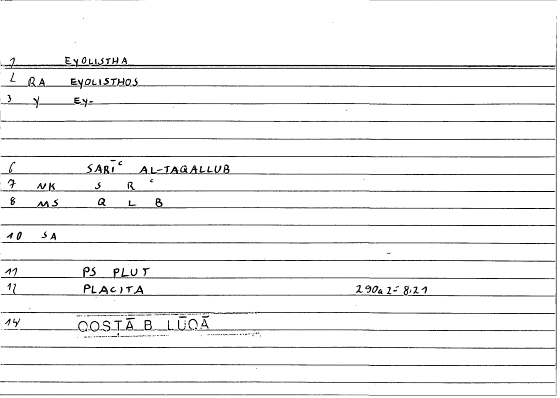 1 EYOLISTHA
2 RA EYOLISTHOS
3 Y EY-
6 SARĪʿ AL-TAQALLUB
7 NK S R ʿ
8 MS Q L B
10 SA
11 PS PLUT
12 PLACITA 290a2-8.21
14 QOSṬĀ B LŪQĀ